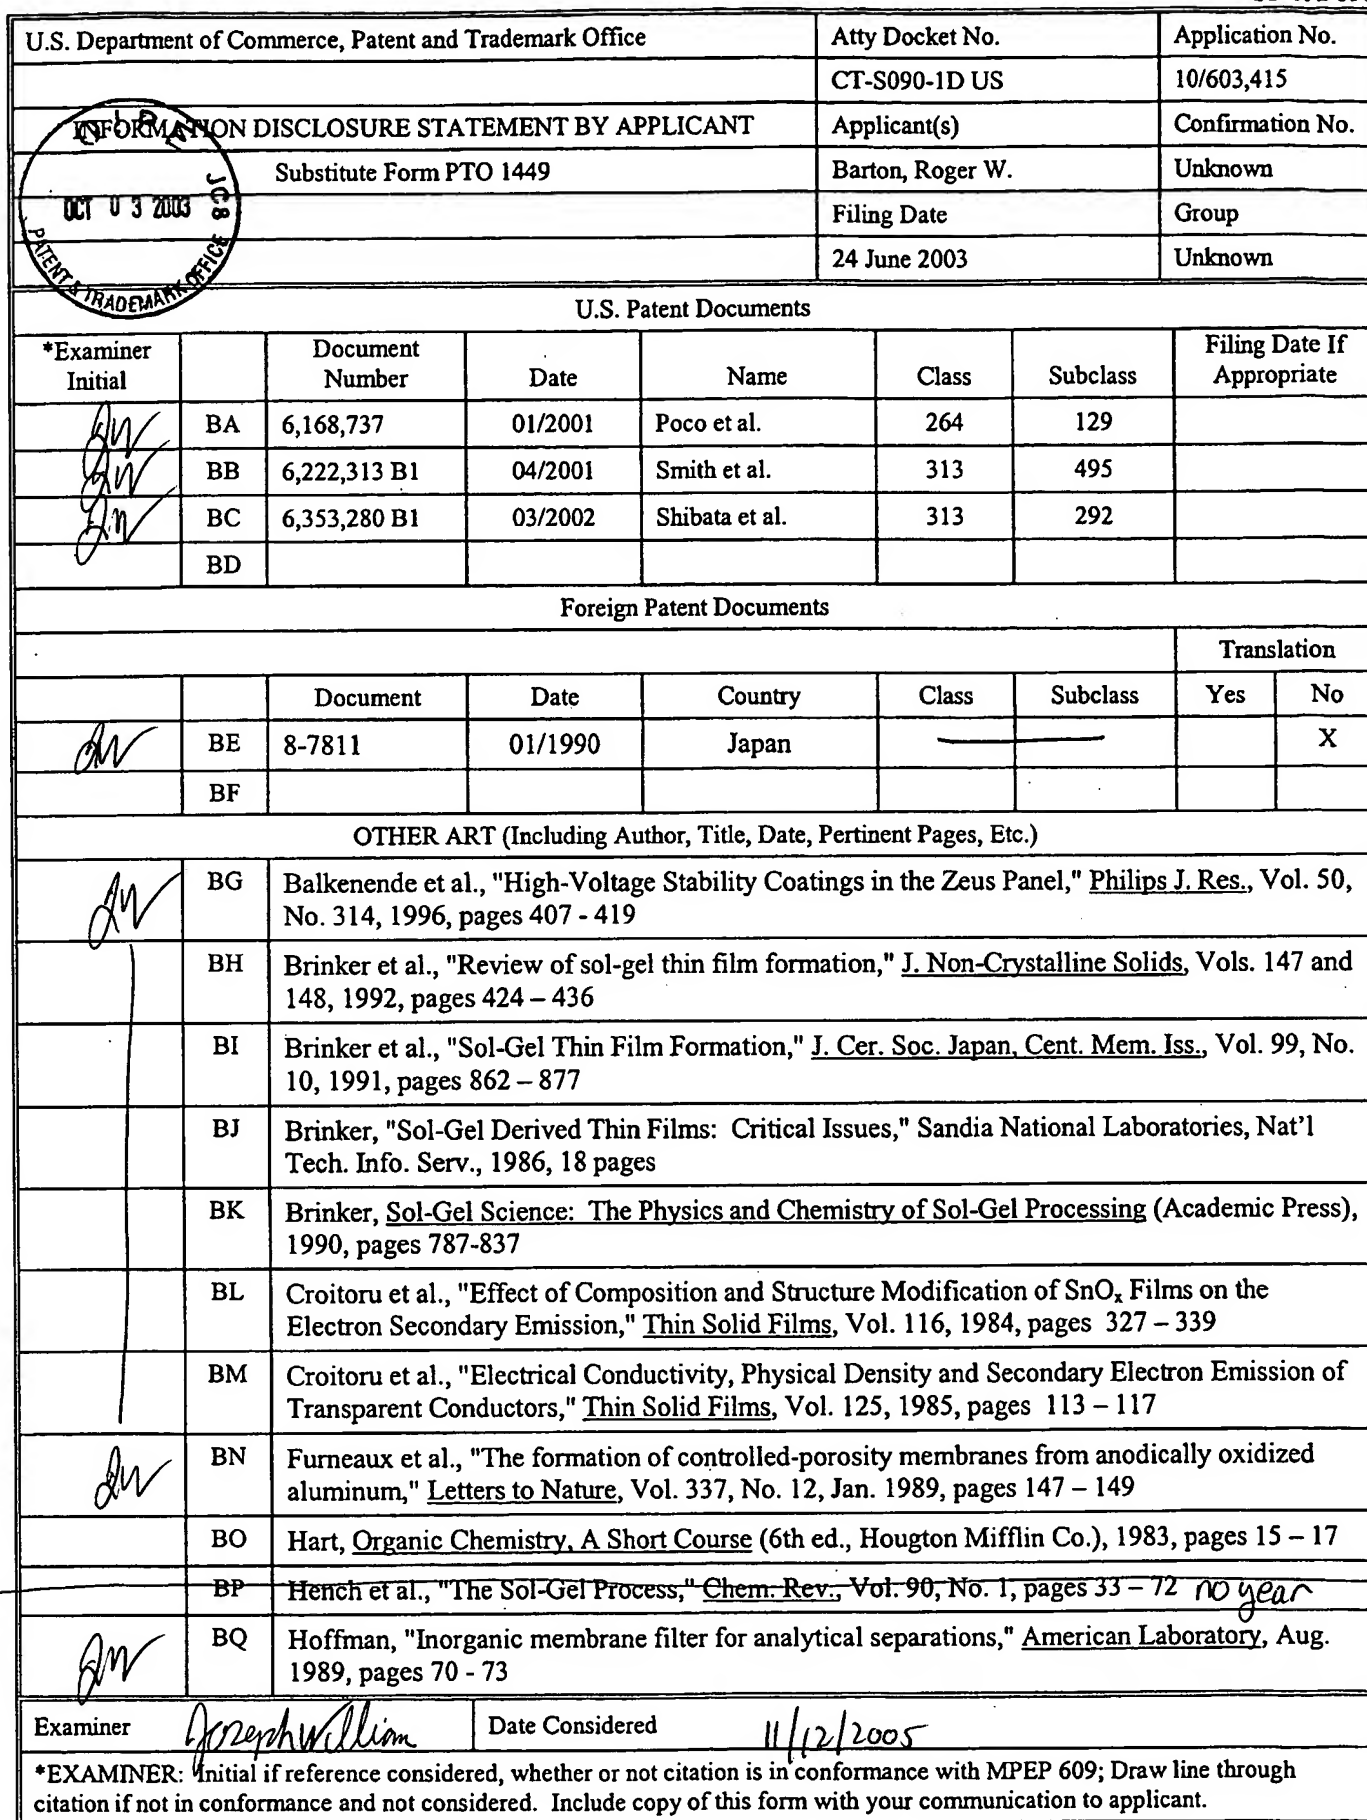 U.S. Department of Commerce, Patent and Trademark Office Atty Docket No. Application No.
CT-S090-1D US 10/603,415
INFORMATION DISCLOSURE STATEMENT BY APPLICANT Applicant(s) Confirmation No.
Substitute Form PTO 1449 Barton, Roger W. Unknown
Filing Date Group
24 June 2003 Unknown
OIPE JC8
OCT 03 2003
PATENT & TRADEMARK OFFICE
U.S. Patent Documents
*Examiner Initial Document Number Date Name Class Subclass Filing Date If Appropriate
BA 6,168,737 01/2001 Poco et al. 264 129
BB 6,222,313 B1 04/2001 Smith et al. 313 495
BC 6,353,280 B1 03/2002 Shibata et al. 313 292
BD
Foreign Patent Documents
Translation
Document Date Country Class Subclass Yes No
BE 8-7811 01/1990 Japan X
BF
OTHER ART (Including Author, Title, Date, Pertinent Pages, Etc.)
BG Balkenende et al., "High-Voltage Stability Coatings in the Zeus Panel," Philips J. Res., Vol. 50,
No. 314, 1996, pages 407 - 419
BH Brinker et al., "Review of sol-gel thin film formation," J. Non-Crystalline Solids, Vols. 147 and
148, 1992, pages 424 – 436
BI Brinker et al., "Sol-Gel Thin Film Formation," J. Cer. Soc. Japan, Cent. Mem. Iss., Vol. 99, No.
10, 1991, pages 862 – 877
BJ Brinker, "Sol-Gel Derived Thin Films: Critical Issues," Sandia National Laboratories, Nat'l
Tech. Info. Serv., 1986, 18 pages
BK Brinker, Sol-Gel Science: The Physics and Chemistry of Sol-Gel Processing (Academic Press),
1990, pages 787-837
BL Croitoru et al., "Effect of Composition and Structure Modification of SnOx Films on the
Electron Secondary Emission," Thin Solid Films, Vol. 116, 1984, pages 327 – 339
BM Croitoru et al., "Electrical Conductivity, Physical Density and Secondary Electron Emission of
Transparent Conductors," Thin Solid Films, Vol. 125, 1985, pages 113 – 117
BN Furneaux et al., "The formation of controlled-porosity membranes from anodically oxidized
aluminum," Letters to Nature, Vol. 337, No. 12, Jan. 1989, pages 147 – 149
BO Hart, Organic Chemistry, A Short Course (6th ed., Hougton Mifflin Co.), 1983, pages 15 – 17
BP Hench et al., "The Sol-Gel Process," Chem. Rev., Vol. 90, No. 1, pages 33 – 72 no year
BQ Hoffman, "Inorganic membrane filter for analytical separations," American Laboratory, Aug.
1989, pages 70 - 73
Examiner Joseph William Date Considered 11/12/2005
*EXAMINER: Initial if reference considered, whether or not citation is in conformance with MPEP 609; Draw line through
citation if not in conformance and not considered. Include copy of this form with your communication to applicant.